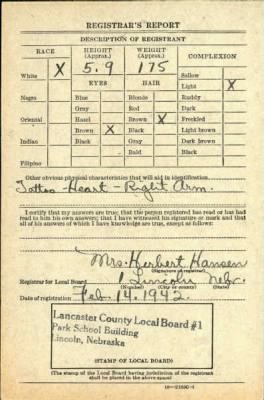 REGISTRAR'S REPORT
DESCRIPTION OF REGISTRANT
RACE HEIGHT (Approx.) WEIGHT (Approx.) COMPLEXION
5.9 175
White X EYES HAIR Sallow
Light X
Negro Blue Blonde Ruddy
Gray Red Dark
Oriental Hazel Brown X Freckled
Brown X Black Light brown
Indian Black Gray Dark brown
Bald Black
Filipino
Other obvious physical characteristics that will aid in identification
Tattoo - Heart - Right Arm.
I certify that my answers are true; that the person registered has read or has had
read to him his own answers; that I have witnessed his signature or mark and that
all of his answers of which I have knowledge are true, except as follows:
Mrs. Herbert Hansen
(Signature of registrar)
Registrar for Local Board 1 Lincoln Nebr.
(Number) (City or county)
Date of registration Feb. 14. 1942.
Lancaster County Local Board #1
Park School Building
Lincoln, Nebraska
(STAMP OF LOCAL BOARD)
(The stamp of the Local Board having jurisdiction of the registrant
shall be placed in the above space)